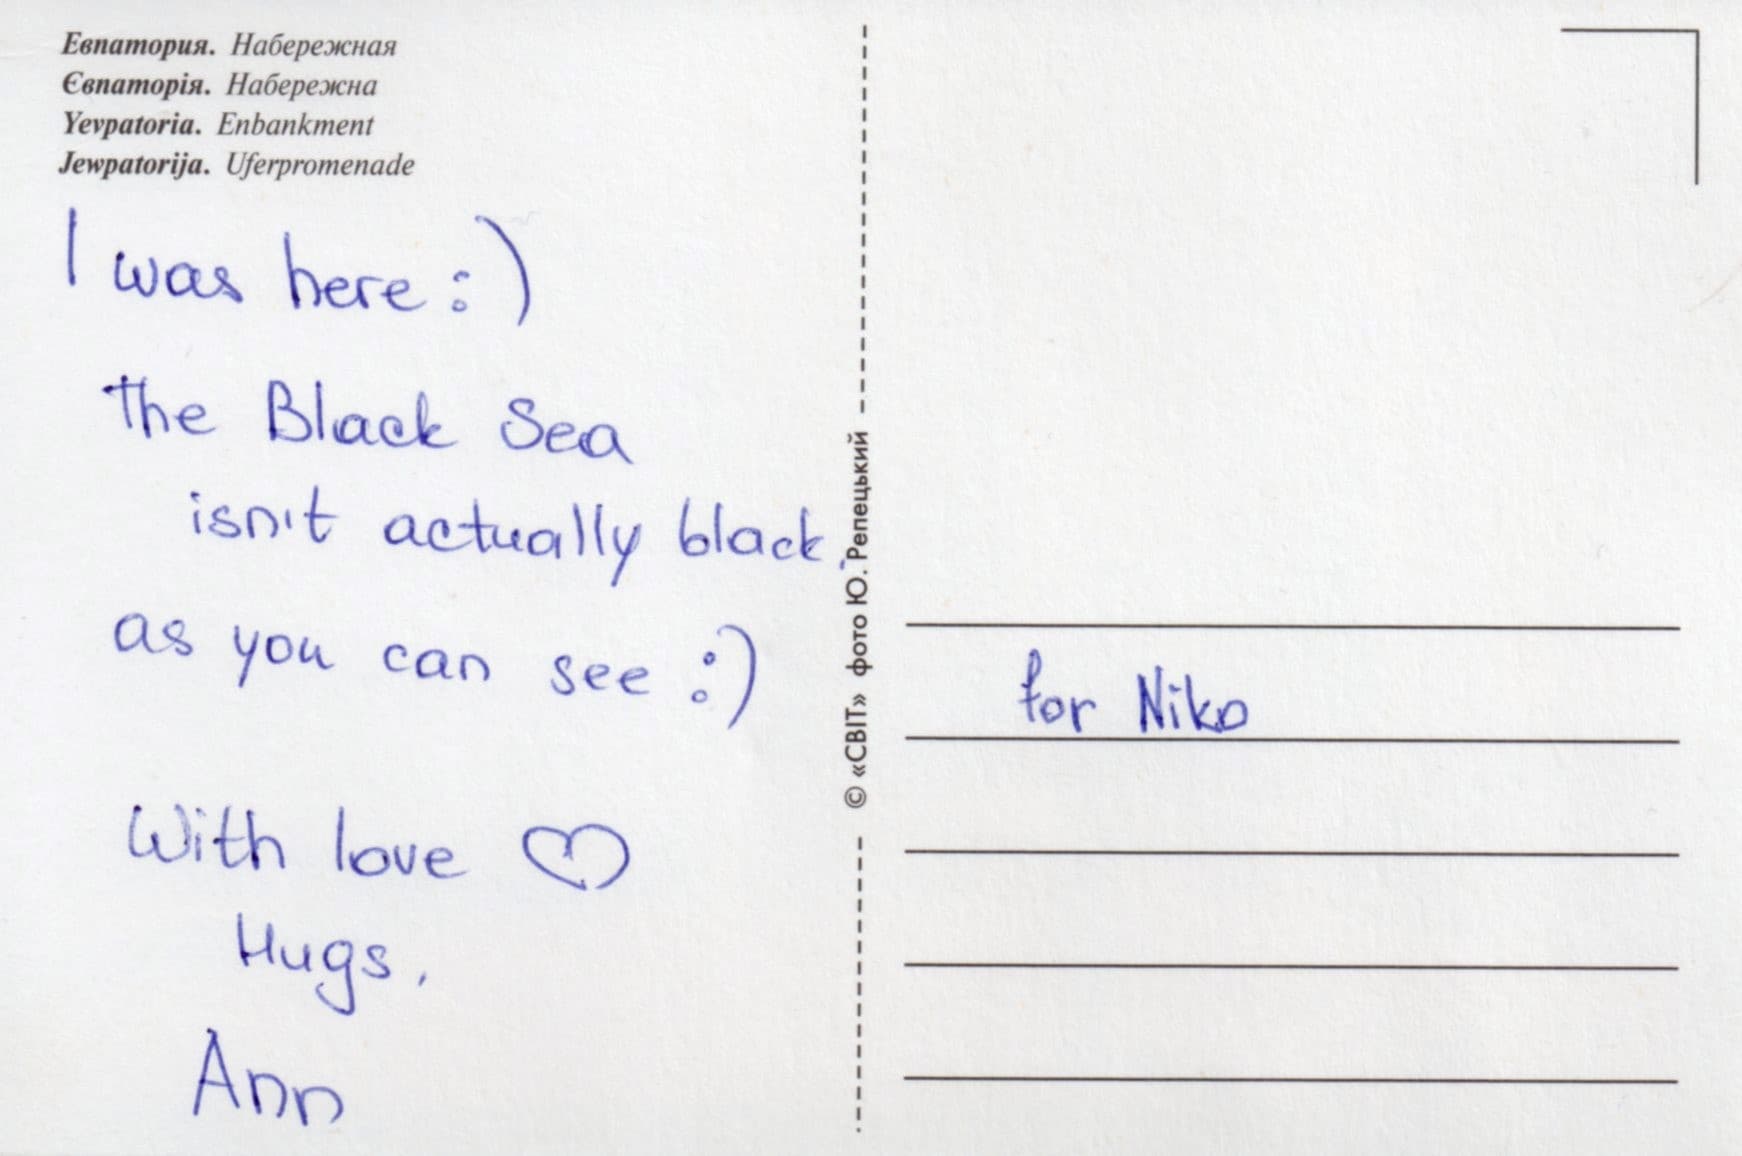 Евпатория. Набережная
Євпаторія. Набережна
Yevpatoria. Enbankment
Jewpatorija. Uferpromenade
I was here :)
the Black Sea
isn't actually black.
as you can see :)
With love ♡
Hugs,
Ann
© «СВІТ» фото Ю. Репецький
for Niko